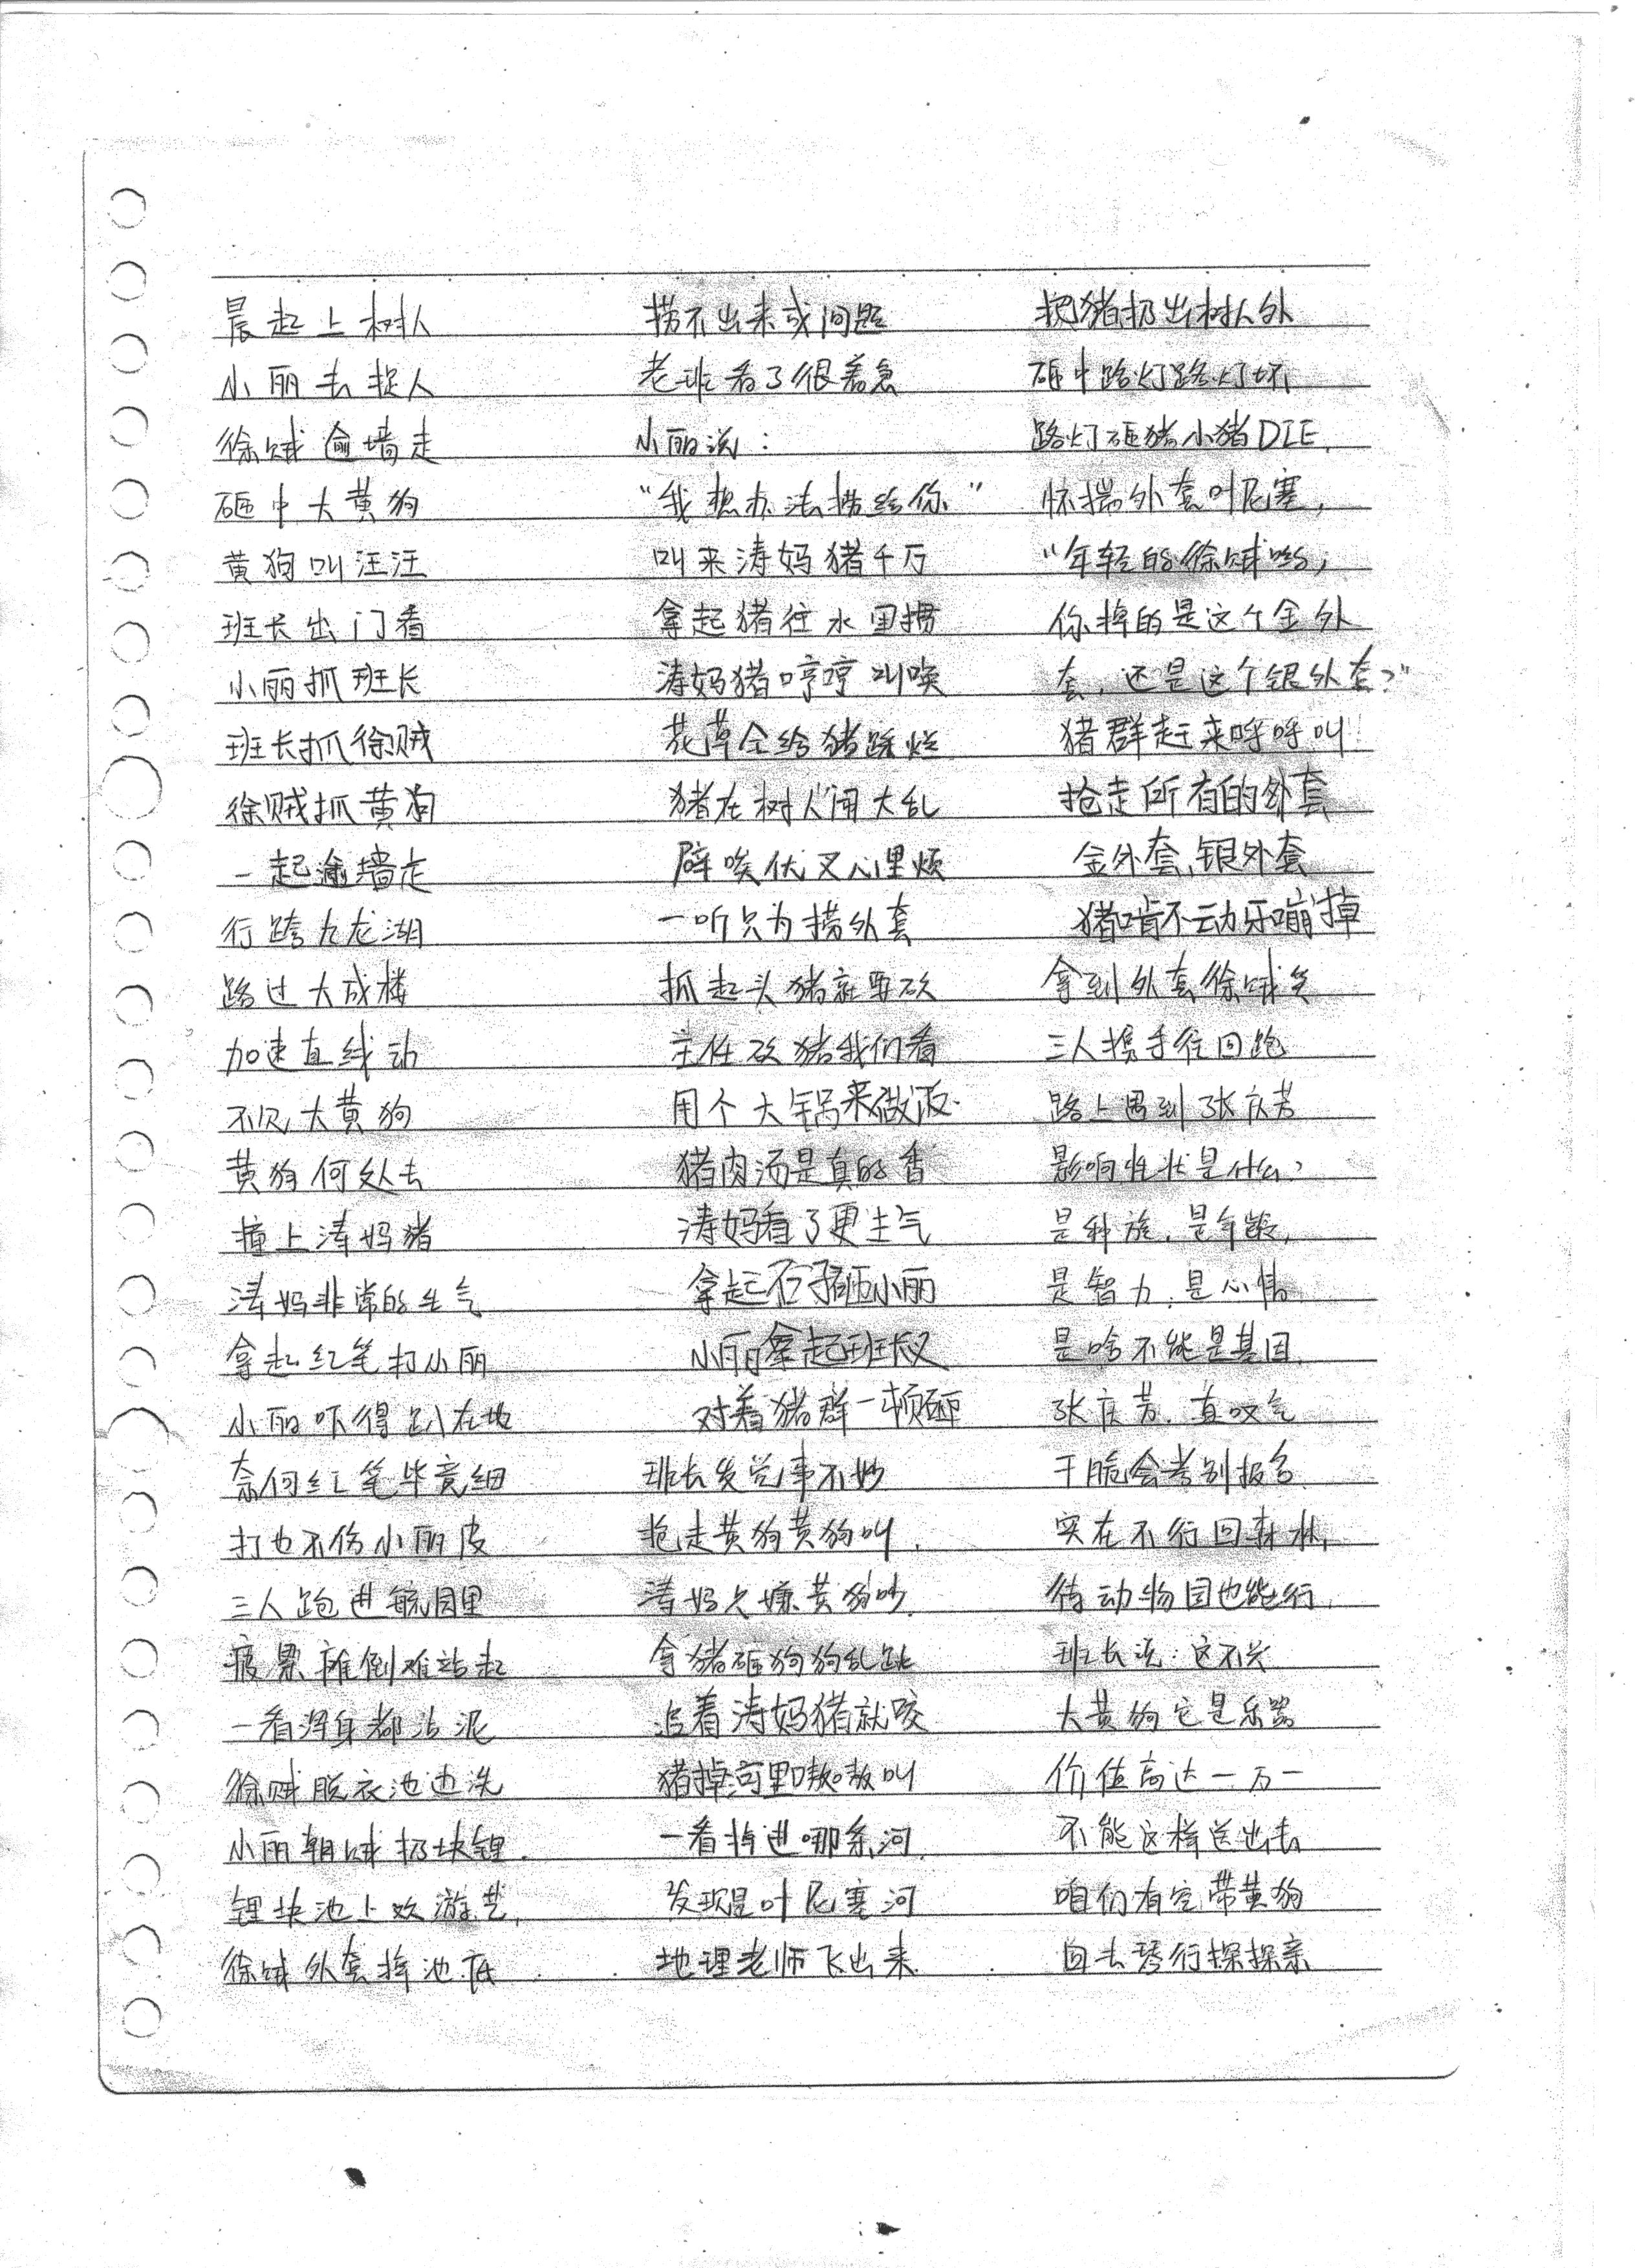 晨起上树人
小丽去捉人
徐贼逾墙走
砸中大黄狗
黄狗叫汪汪
班长出门看
小丽抓班长
班长抓徐贼
徐贼抓黄狗
一起逾墙走
行跨九龙湖
路过大成楼
加速直线动
不见大黄狗
黄狗何处去
撞上涛妈猪
涛妈非常的生气
拿起红笔打小丽
小丽吓得趴在地
奈何红笔毕竟细
打也不伤小丽皮
三人跑进毓园里
疲累摊倒难站起
一看浑身都沾泥
徐贼脱衣池边洗
小丽朝贼扔块锂.
锂块池上欢游艺,
徐贼外套掉池底
捞不出来或问题
老班看了很着急
小丽说：
“我想办法捞给你”
叫来涛妈猪千万
拿起猪往水里掼
涛妈猪哼哼叫唤
花草全给猪踩烂
猪在树人闹大乱
薛唉伏又心里烦
一听只为捞外套
抓起头猪就要砍
主任砍猪我们看
用个大锅来做饭.
猪肉汤是真的香
涛妈看了更生气
拿起石子砸小丽
小丽拿起班长叉
对着猪群一顿砸
班长发觉事不妙
抱走黄狗黄狗叫.
涛妈久嫌黄狗吵.
拿猪砸狗狗乱跳
追着涛妈猪就咬
猪掉河里嗷嗷叫
一看掉进哪条河.
发现是叶尼塞河
地理老师飞出来.
把猪扔出树人外
砸中路灯路灯坏
路灯砸猪小猪DIE.
怀揣外套叶尼塞,
“年轻的徐贼哟,
你掉的是这个金外
套,还是这个银外套?”
猪群起来呼呼叫!
抢走所有的外套
金外套,银外套
猪啃不动牙嘣掉
拿到外套徐贼笑
三人携手往回跑
路上遇到张庆芳
影响性状是什么?
是种族,是年龄,
是智力,是心情
是啥不能是基因.
张庆芳,直叹气
干脆会考别报名.
实在不行回森林,
待动物园也能行.
班长说:这不兴
大黄狗它是乐器
价值高达一万一
不能这样送出去
咱们有空带黄狗
回去琴行探探亲